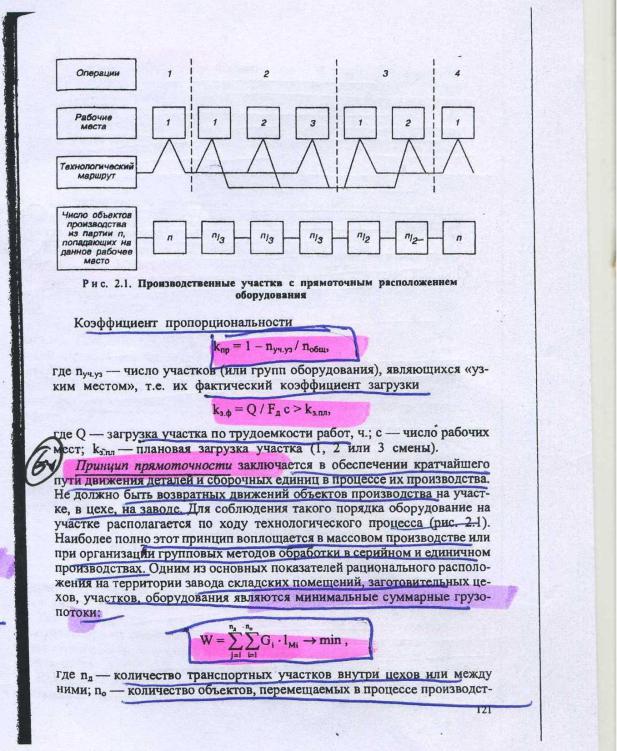 Операции 1 2 3 4
Рабочие
места
1 1 2 3 1 2 1
Технологический
маршрут
Число объектов
производства
из партии n,
попадающих на
данное рабочее
место
n n/3 n/3 n/3 n/2 n/2 n
Рис. 2.1. Производственные участки с прямоточным расположением
оборудования
Коэффициент пропорциональности
kпр = 1 – nуч.уз / nобщ,
где nуч.уз — число участков (или групп оборудования), являющихся «уз-
ким местом», т.е. их фактический коэффициент загрузки
kз.ф = Q / Fд c > kз.пл,
где Q — загрузка участка по трудоемкости работ, ч.; с — число рабочих
мест; kз.пл — плановая загрузка участка (1, 2 или 3 смены).
Принцип прямоточности заключается в обеспечении кратчайшего
пути движения деталей и сборочных единиц в процессе их производства.
Не должно быть возвратных движений объектов производства на участ-
ке, в цехе, на заводе. Для соблюдения такого порядка оборудование на
участке располагается по ходу технологического процесса (рис. 2.1).
Наиболее полно этот принцип воплощается в массовом производстве или
при организации групповых методов обработки в серийном и единичном
производствах. Одним из основных показателей рационального располо-
жения на территории завода складских помещений, заготовительных це-
хов, участков, оборудования являются минимальные суммарные грузо-
потоки:
nд nо
W = ∑ ∑ Gi · lMi → min ,
j=1 i=1
где nд — количество транспортных участков внутри цехов или между
ними; nо — количество объектов, перемещаемых в процессе производст-
121